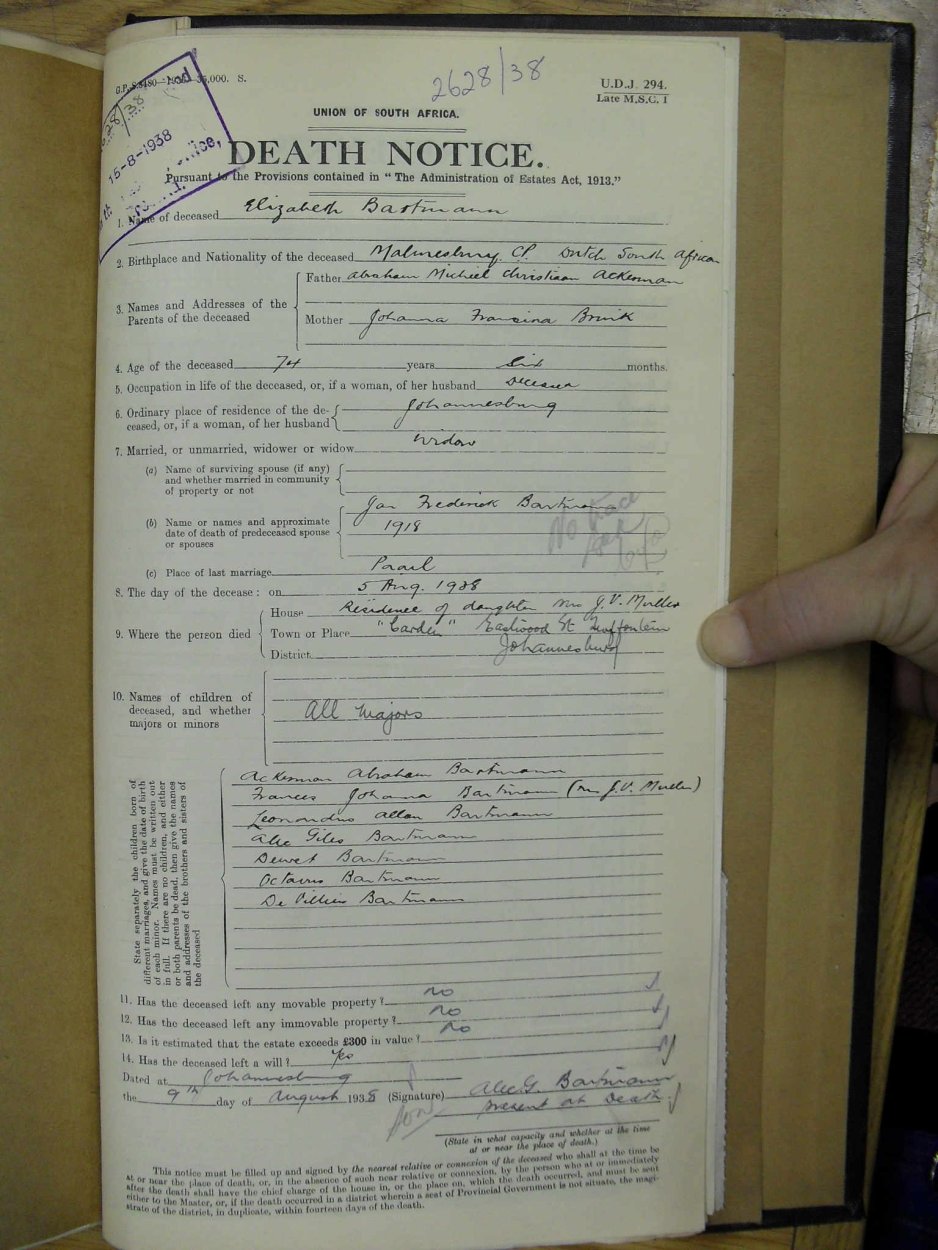 G.P.-S.8480-1935-35,000. S.
2628/38
U.D.J. 294.
Late M.S.C. 1
15-8-1938
UNION OF SOUTH AFRICA.
DEATH NOTICE.
Pursuant to the Provisions contained in "The Administration of Estates Act, 1913."
1. Name of deceased Elizabeth Bartmann
2. Birthplace and Nationality of the deceased Malmesbury, CP. Dutch South African
3. Names and Addresses of the Parents of the deceased
Father Abraham Michiel Christiaan Ackerman
Mother Johanna Francina Bruik
4. Age of the deceased 74 years Six months.
5. Occupation in life of the deceased, or, if a woman, of her husband Deceased
6. Ordinary place of residence of the deceased, or, if a woman, of her husband Johannesburg
7. Married, or unmarried, widower or widow Widow
(a) Name of surviving spouse (if any) and whether married in community of property or not
(b) Name or names and approximate date of death of predeceased spouse or spouses
Jan Frederick Bartmann
1918
No trace
(c) Place of last marriage Paarl
8. The day of the decease: on 5 Aug. 1938
9. Where the person died
House Residence of daughter Mrs J.V. Muller
Town or Place "Carden" Eastwood St Turffontein
District Johannesburg
10. Names of children of deceased, and whether majors or minors
All Majors
State separately the children born of different marriages, and give the date of birth of each minor. Names must be written out in full. If there are no children, and either or both parents be dead, then give the names and addresses of the brothers and sisters of the deceased
Ackerman Abraham Bartmann
Frances Johanna Bartmann (Mrs J.V. Muller)
Leonardus Allan Bartmann
Alec Giles Bartmann
Dewet Bartmann
Octavus Bartmann
De Villiers Bartmann
11. Has the deceased left any movable property? no
12. Has the deceased left any immovable property? no
13. Is it estimated that the estate exceeds £300 in value? no
14. Has the deceased left a will? Yes
Dated at Johannesburg
the 9th day of August 1938 (Signature) Alec G. Bartmann
present at Death
(State in what capacity and whether at the time
at or near the place of death.)
This notice must be filled up and signed by the nearest relative or connexion of the deceased who shall at the time be
at or near the place of death, or, in the absence of such near relative or connexion, by the person who at or immediately
after the death shall have the chief charge of the house in, or the place on, which the death occurred, and must be sent
either to the Master, or, if the death occurred in a district wherein a seat of Provincial Government is not situate, the magi-
strate of the district, in duplicate, within fourteen days of the death.